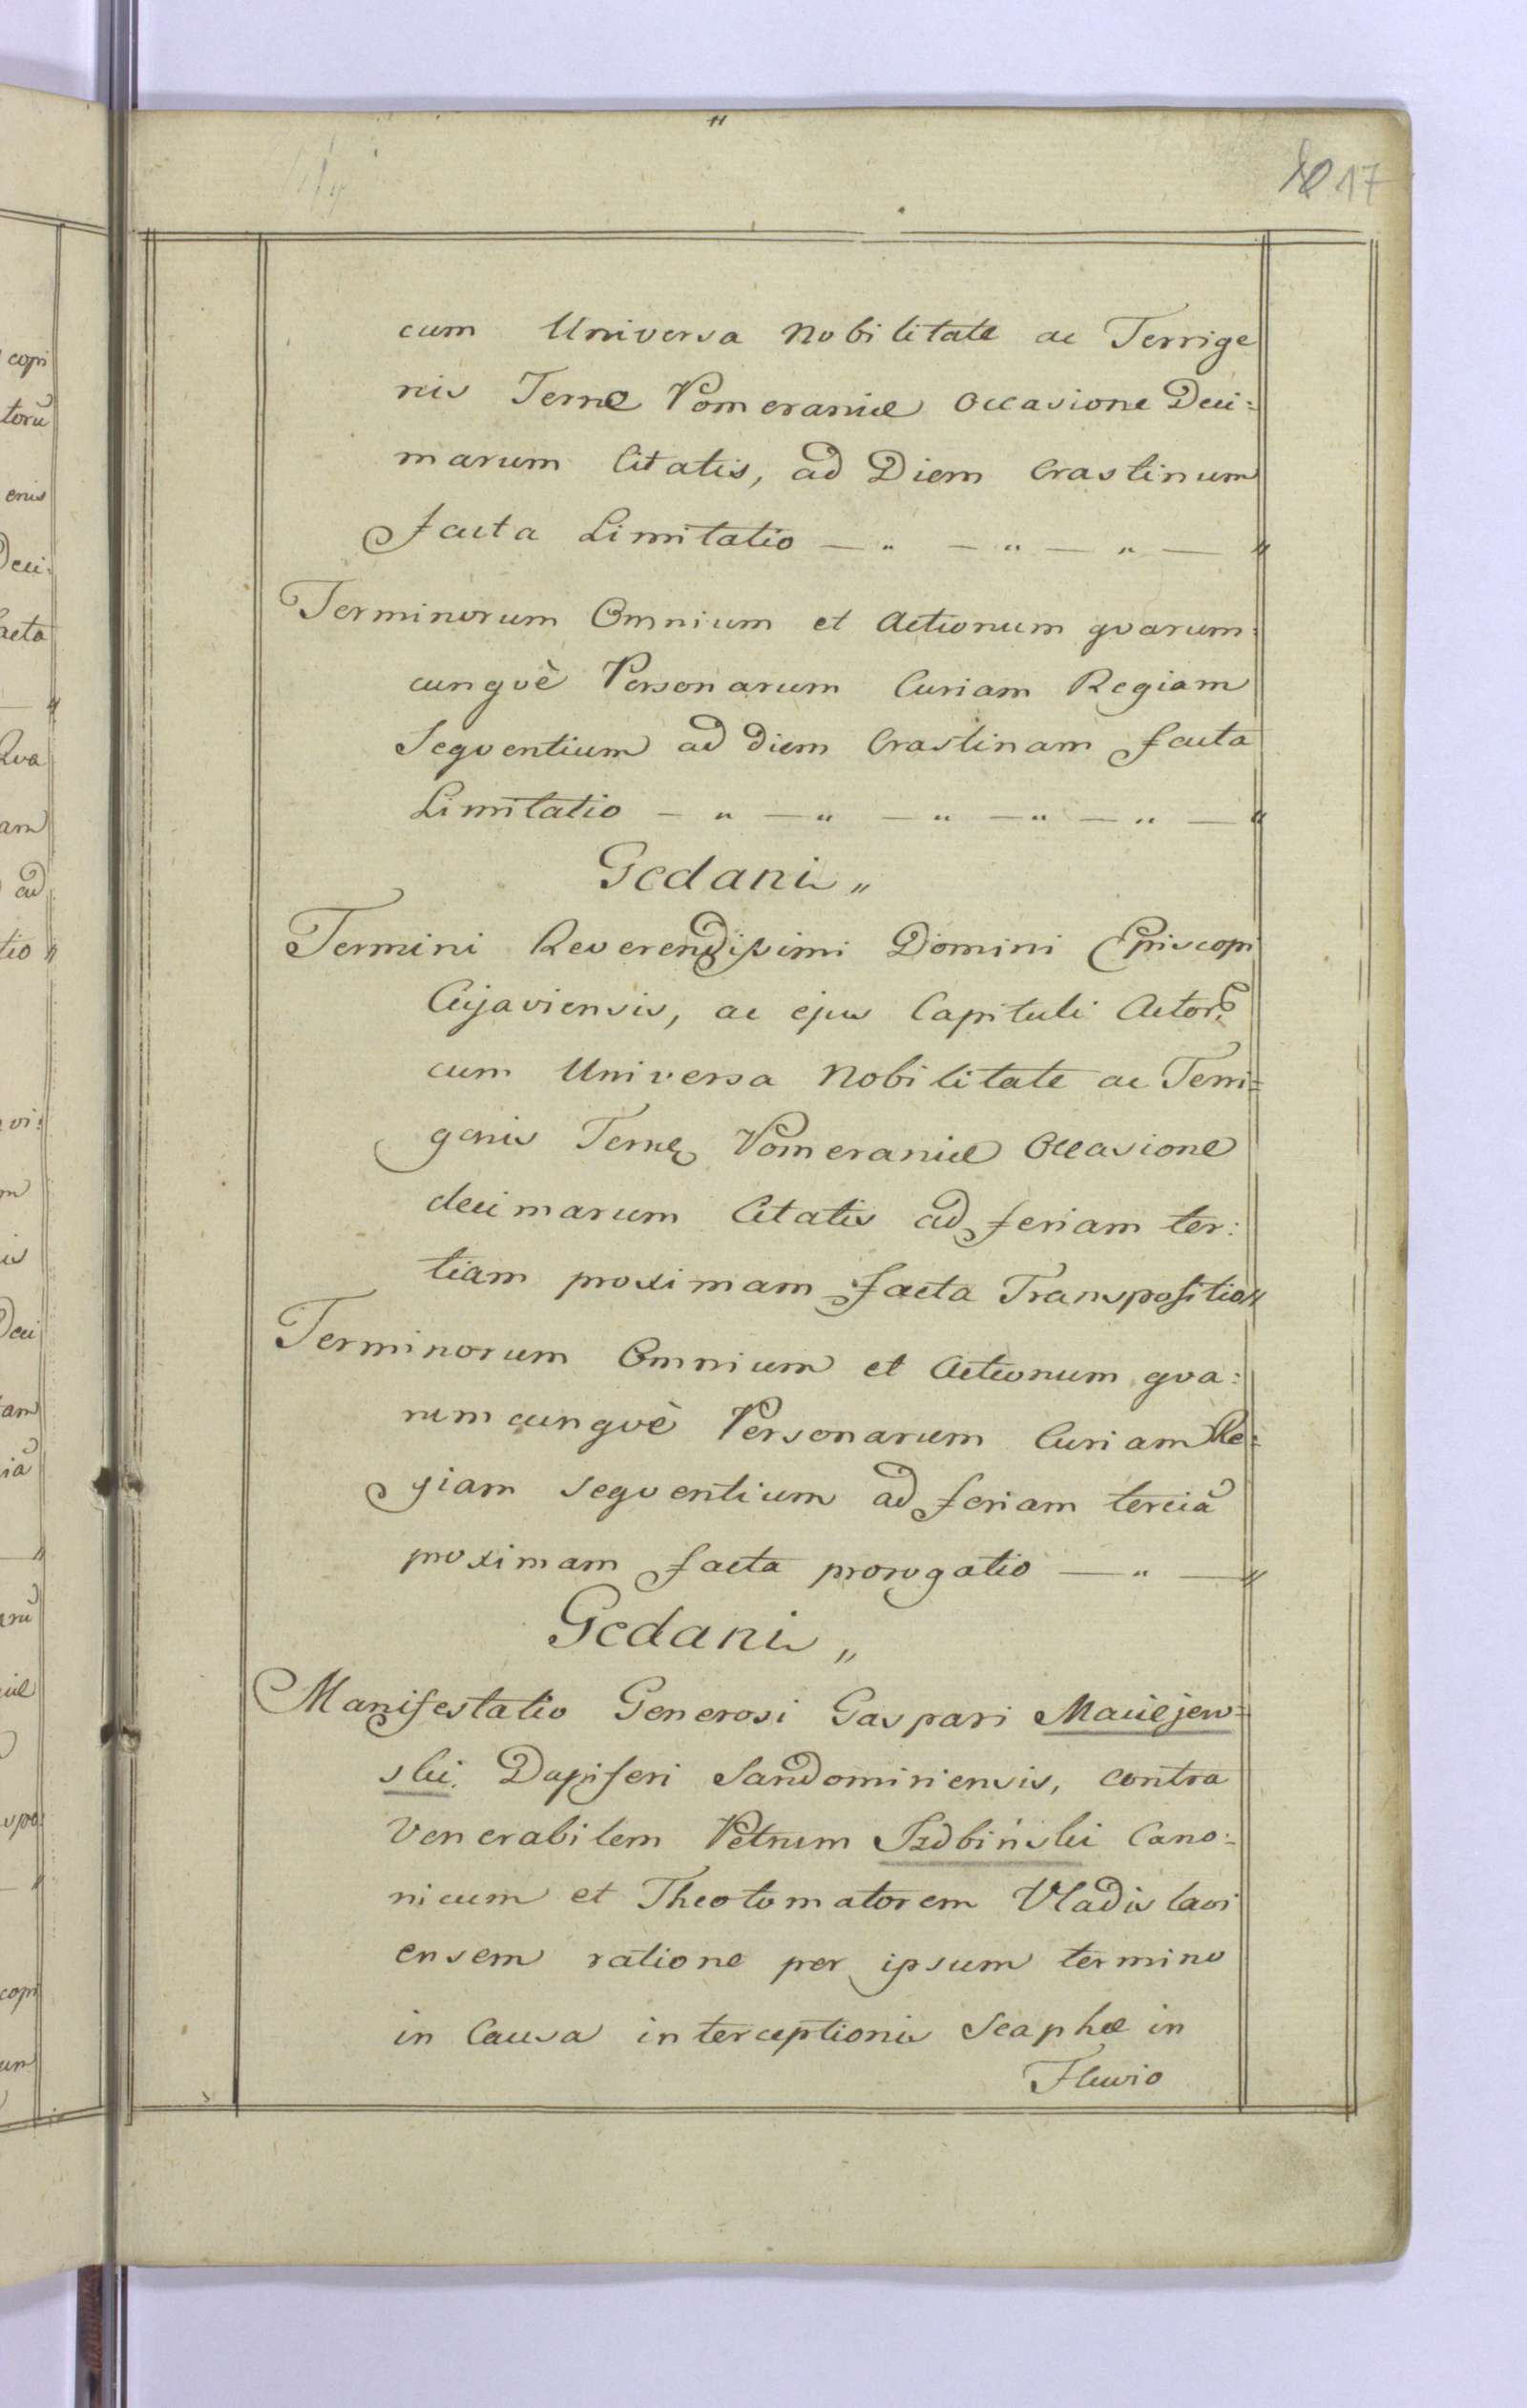 17
cum Universa Nobilitate ac Terrige
nis Terræ Pomeraniæ Occasione Deci:
marum Citatis, ad Diem Crastinum
facta Limitatio — „ — „ — „ — „
Terminorum Omnium et Actionum qvarum:
cunqvè Personarum Curiam Regiam
Seqventium ad diem Crastinam facta
Limitatio — „ — „ — „ — „ — „ — „
Gedani „
Termini Reverendissimi Domini Episcopi
Cujaviensis, ac ejus Capituli Actor:
cum Universa Nobilitate ac Terri=
genis Terræ Pomeraniæ Occasione
decimarum Citatis ad feriam ter:
tiam proximam facta Transpositio „
Terminorum Omnium et Actionum qva:
rumcunqvè Personarum Curiam Re:
giam seqventium ad feriam terciã
proximam facta prorogatio — „ — „
Gedani „
Manifestatio Generosi Gaspari Maciejew=
ski Dapiferi Sandomiriensis, contra
Venerabilem Petrum Szdbiński Cano:
nicum et Theotomatorem Vladislavi
ensem ratione per ipsum termino
in Causa interceptionis Scaphæ in
Fluvio